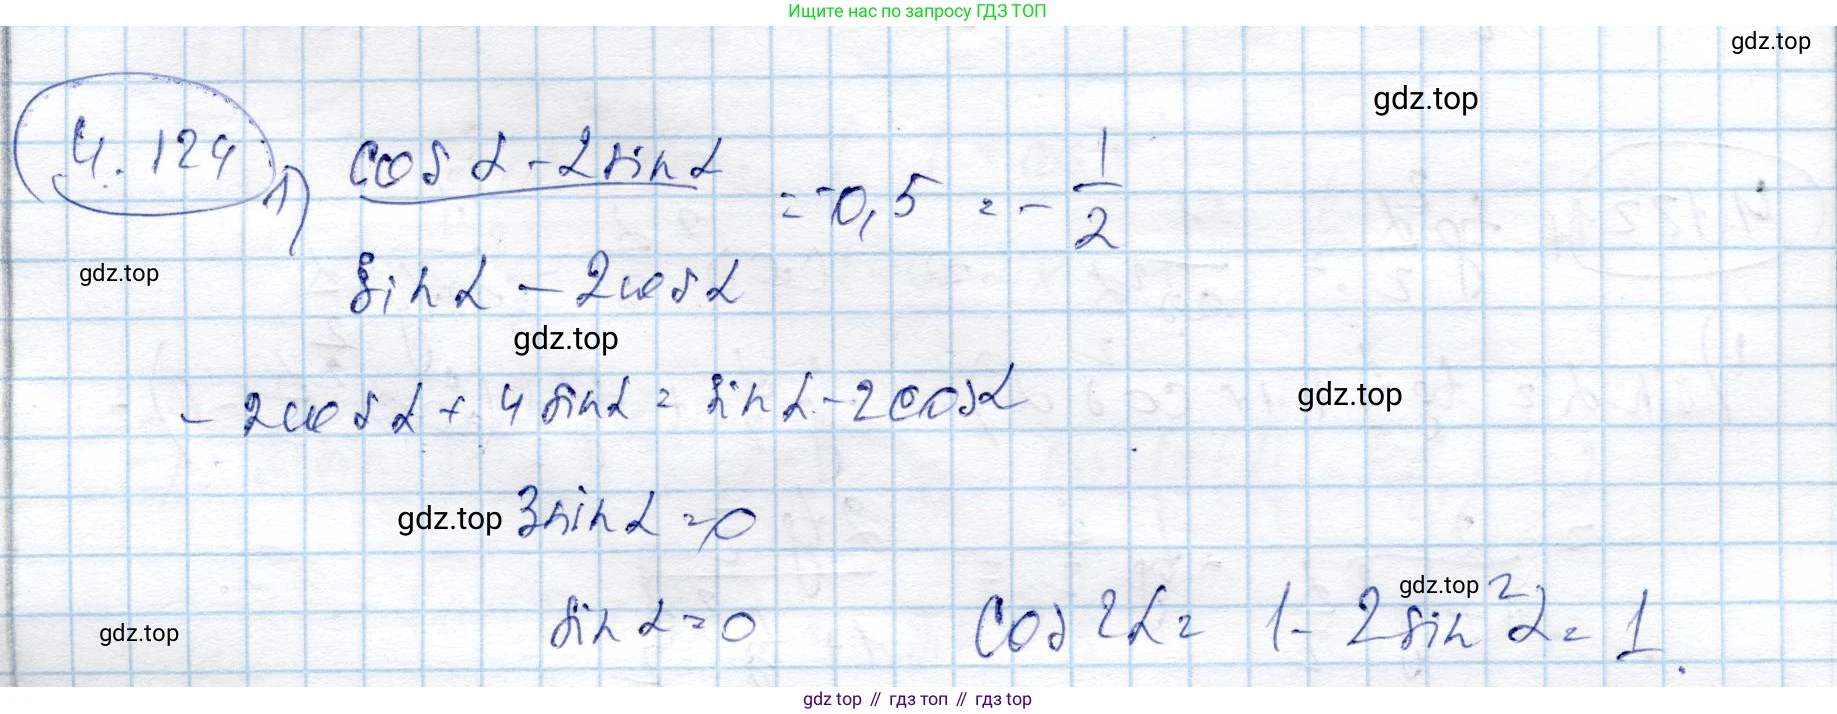 Ищите нас по запросу ГДЗ ТОП
gdz.top
gdz.top
4.124
1) (cos α - 2 sin α) / (sin α - 2 cos α) = -0,5 = - 1/2
gdz.top
gdz.top
- 2 cos α + 4 sin α = sin α - 2 cos α
gdz.top
gdz.top
3 sin α = 0
gdz.top
gdz.top
sin α = 0 cos 2α = 1 - 2 sin² α = 1.
gdz top // гдз топ // гдз top